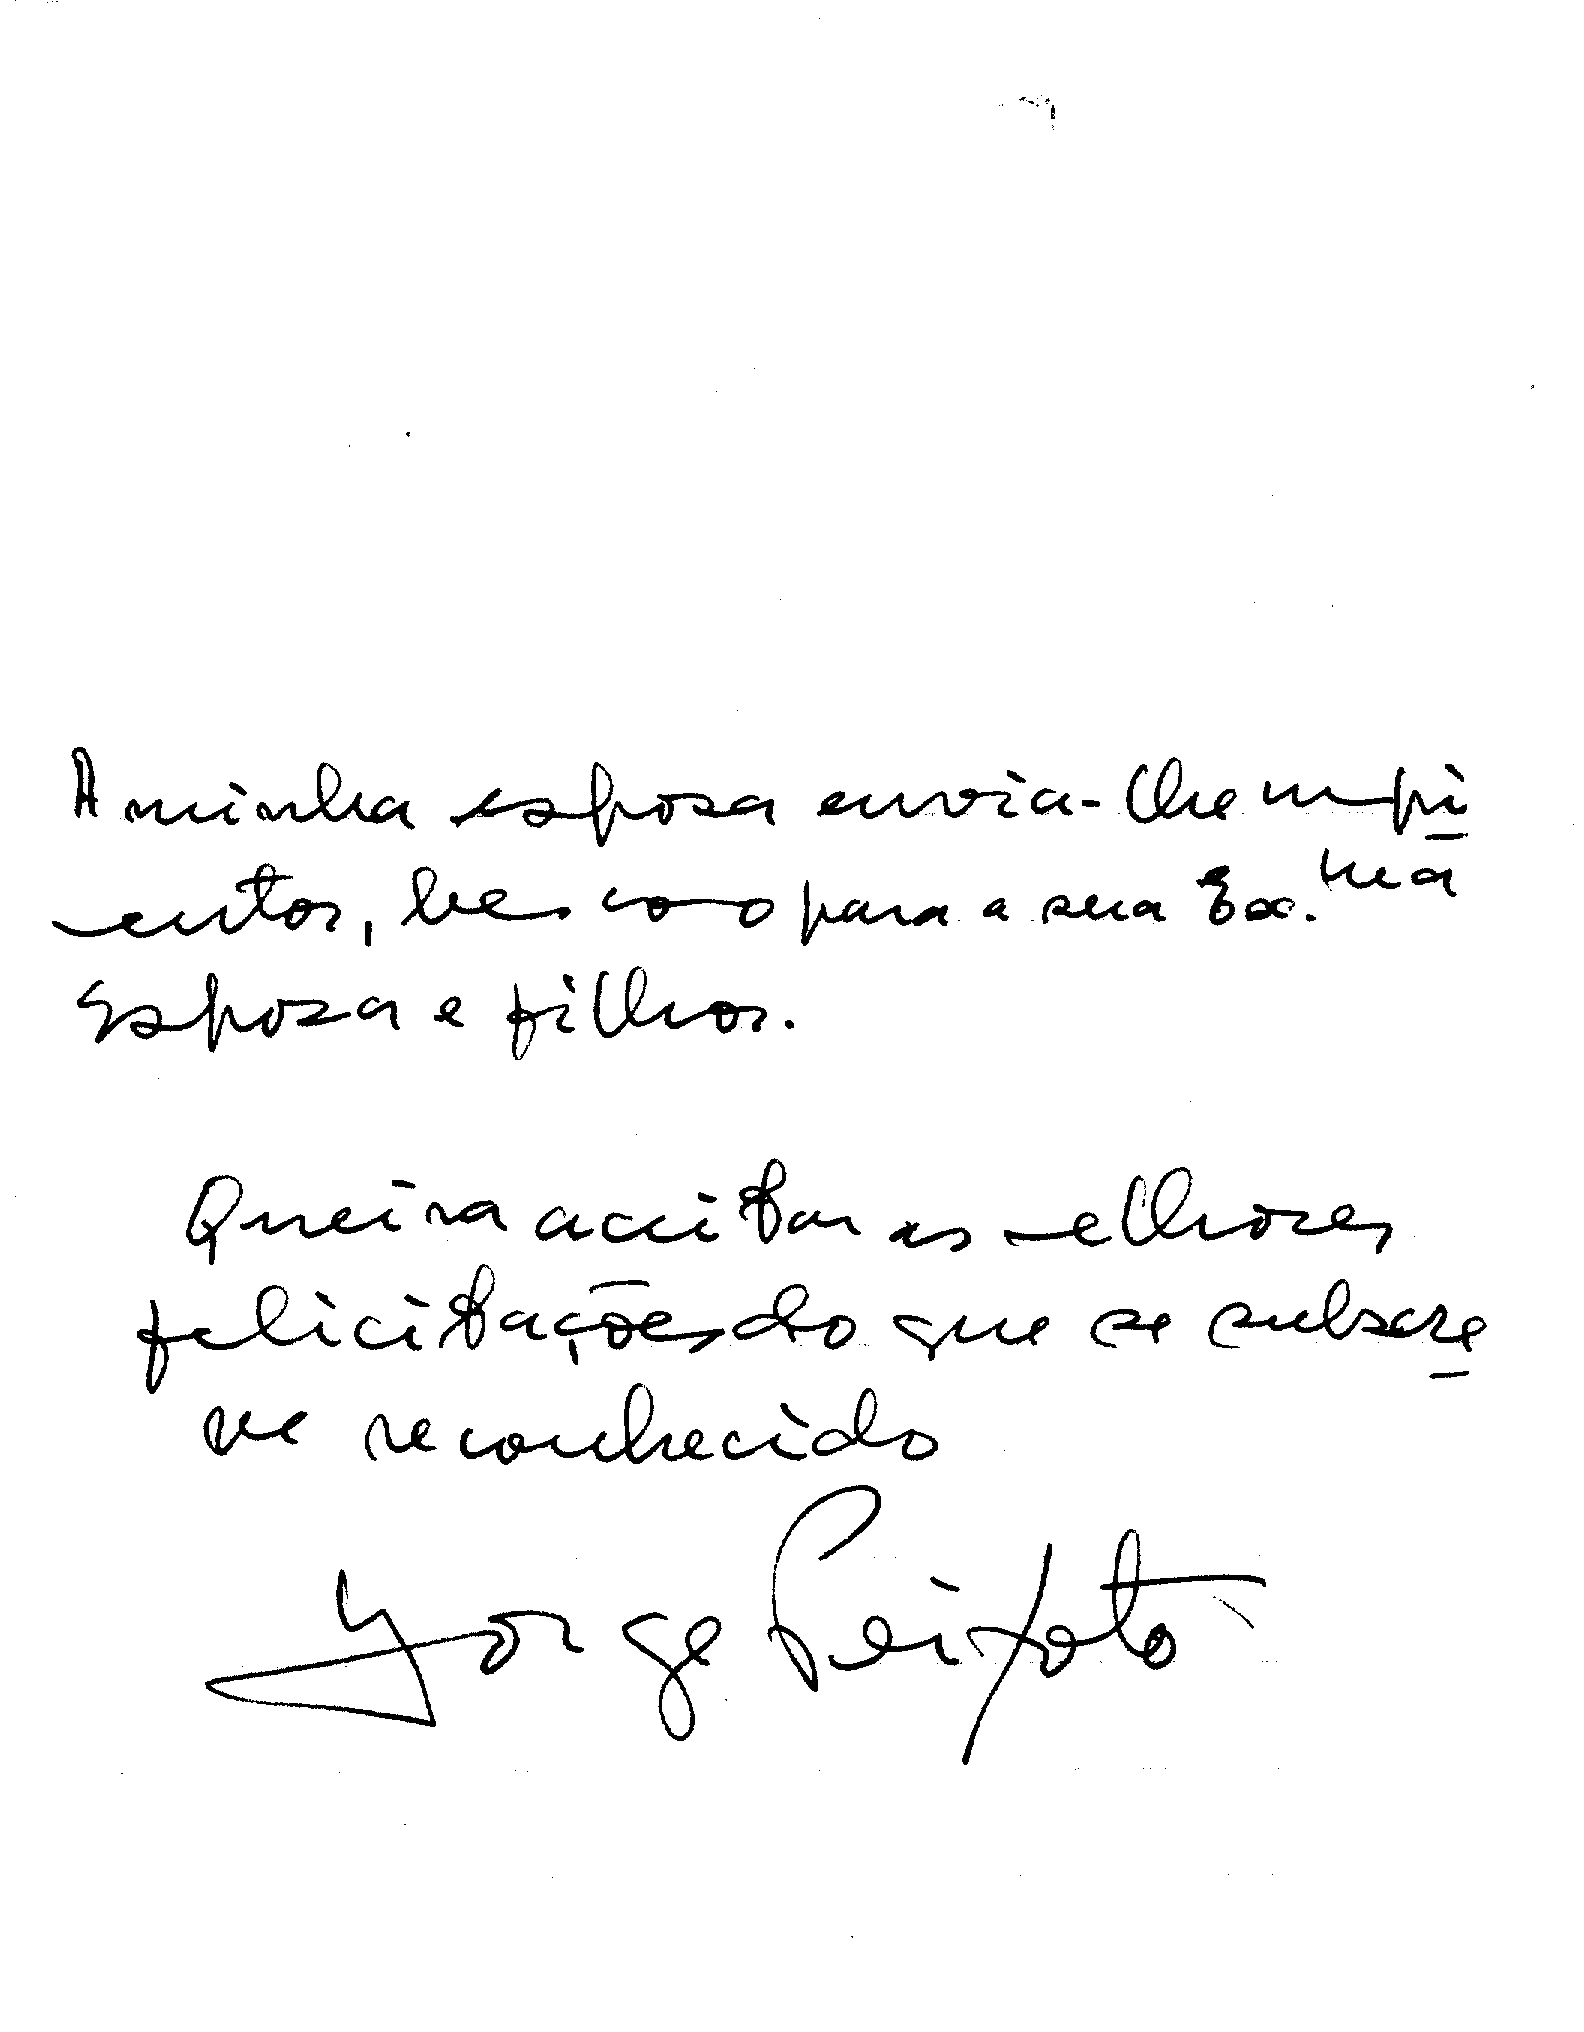 A minha esposa envia-lhe cumpri
mentos, bem como para a sua Ex.ma
Esposa e filhos.
Queira aceitar as melhores
felicitações do que se subscre
ve reconhecido
Jorge Peixoto